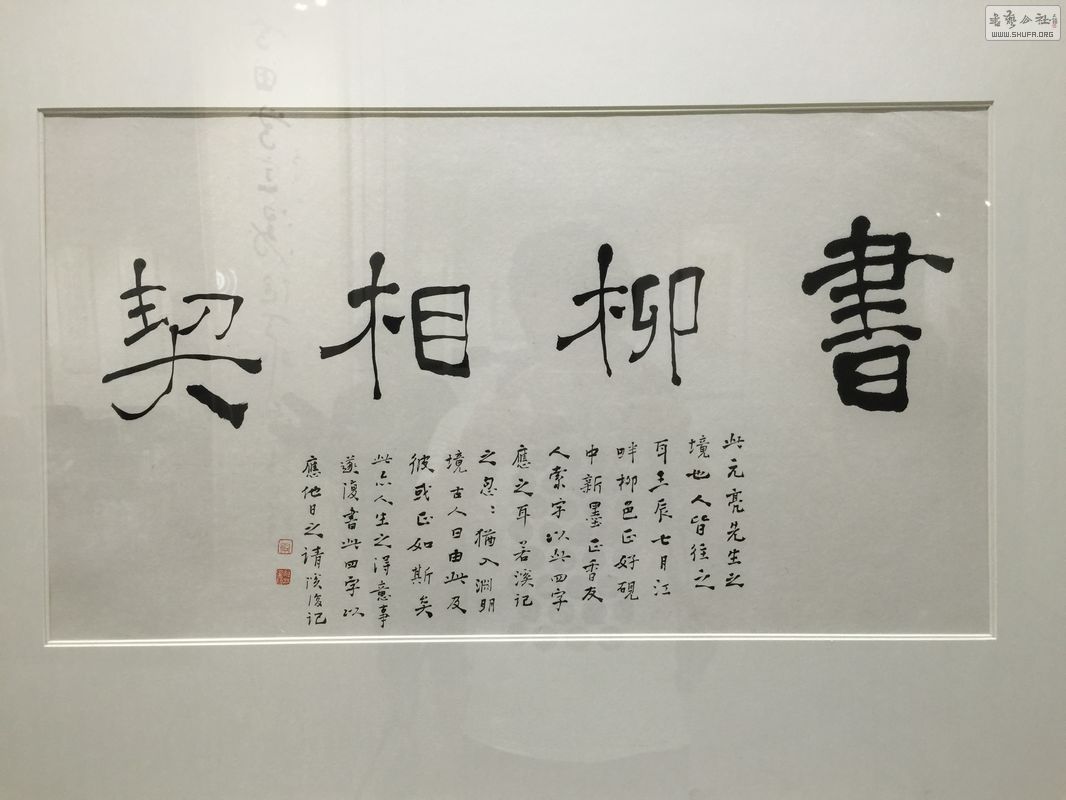 書柳相契
此元亮先生之
境也人皆往之
耳壬辰七月江
畔柳色正好硯
中新墨正香友
人索字以此四字
應之耳若溪記
之忽：猶入淵明
境古人曰由此及
彼或正如斯矣
此亦人生之得意事
遂復書此四字以
應他日之請 後記
書藝公社
WWW.SHUFA.ORG